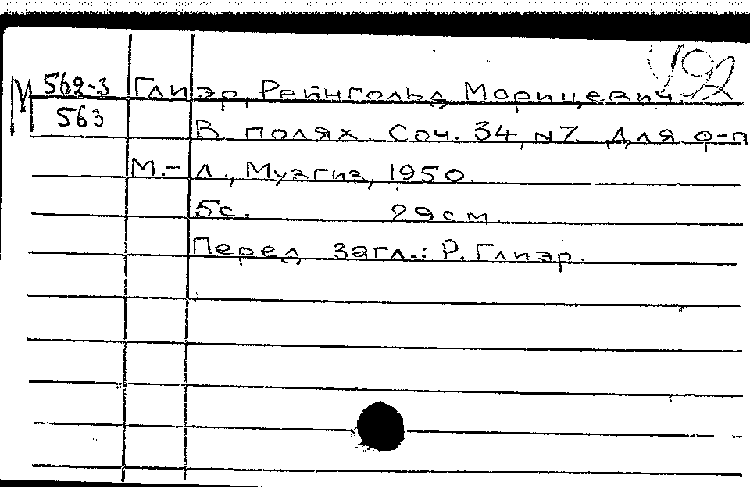 492
М 562-3 Глиэр, Рейнгольд Морицевич.
563 В полях. Соч. 34, №7. Для ф-п
М.-Л., Музгиз, 1950.
5с. 29см.
Перед загл.: Р. Глиэр.